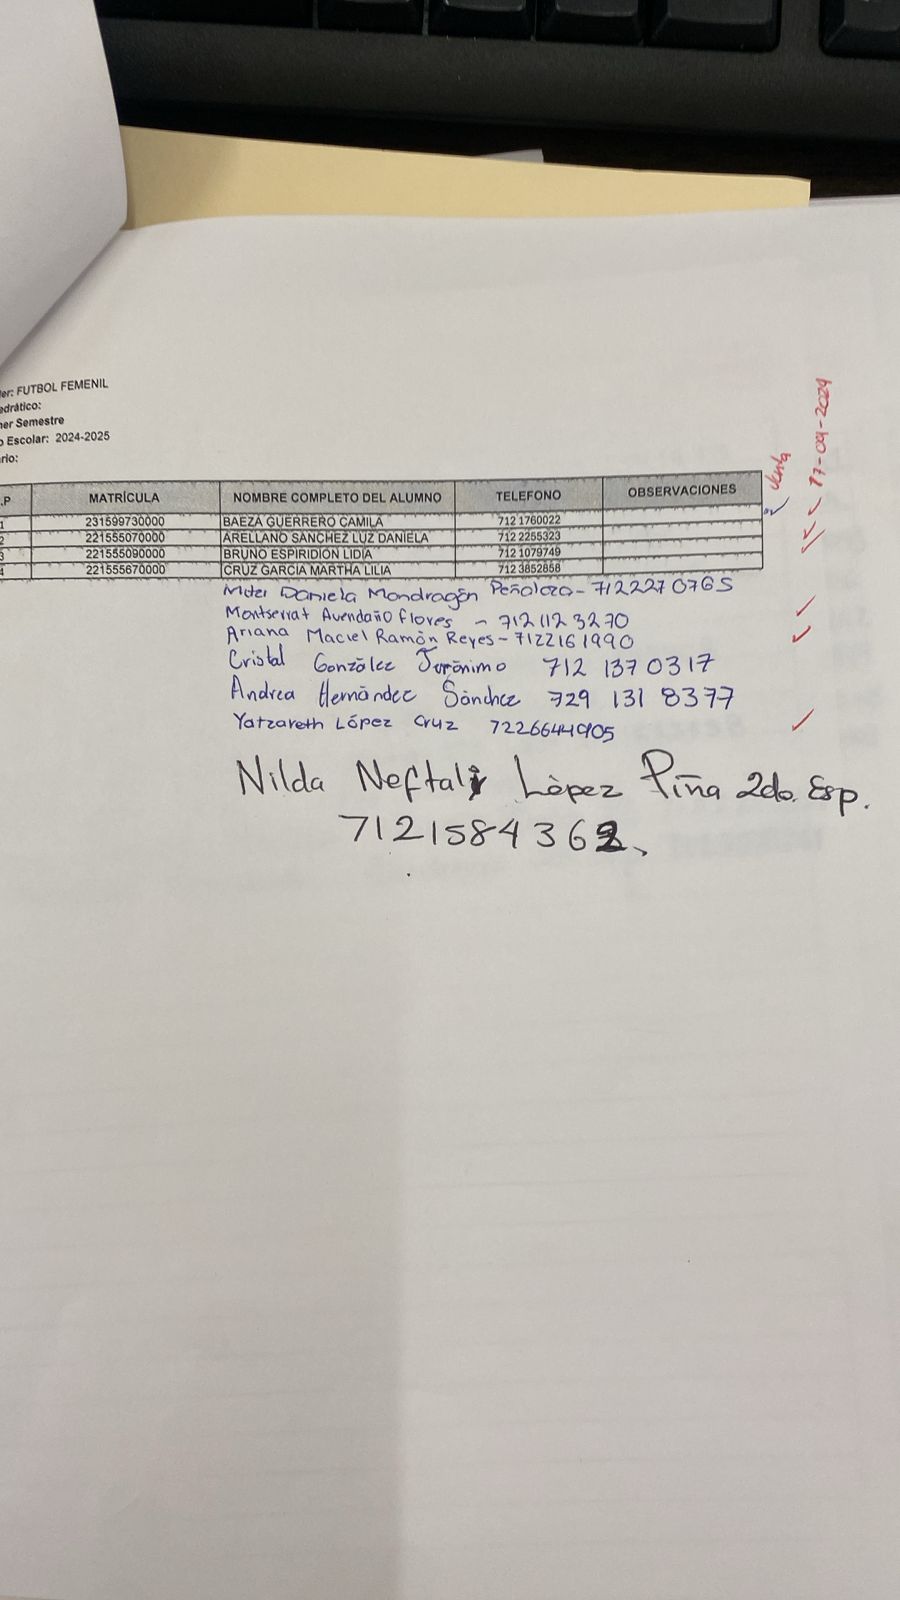 ler: FUTBOL FEMENIL
edrático:
ner Semestre
o Escolar: 2024-2025
rio:
.P MATRÍCULA NOMBRE COMPLETO DEL ALUMNO TELEFONO OBSERVACIONES
1 231599730000 BAEZA GUERRERO CAMILA 712 1760022
2 221555070000 ARELLANO SANCHEZ LUZ DANIELA 712 2255323
3 221555090000 BRUNO ESPIRIDION LIDIA 712 1079749
4 221555670000 CRUZ GARCIA MARTHA LILIA 712 3852858
Daniela Mondragón Peñaloza - 7122270765
Montserrat Avendaño flores - 712 112 3270
Ariana Maciel Ramón Reyes - 7122161990
Cristal González Jerónimo 712 137 0317
Andrea Hernández Sánchez 729 131 8377
Yatzareth López Cruz 7226644905
Nilda Neftali López Piña 2do. Esp.
7121584362
17-09-2024